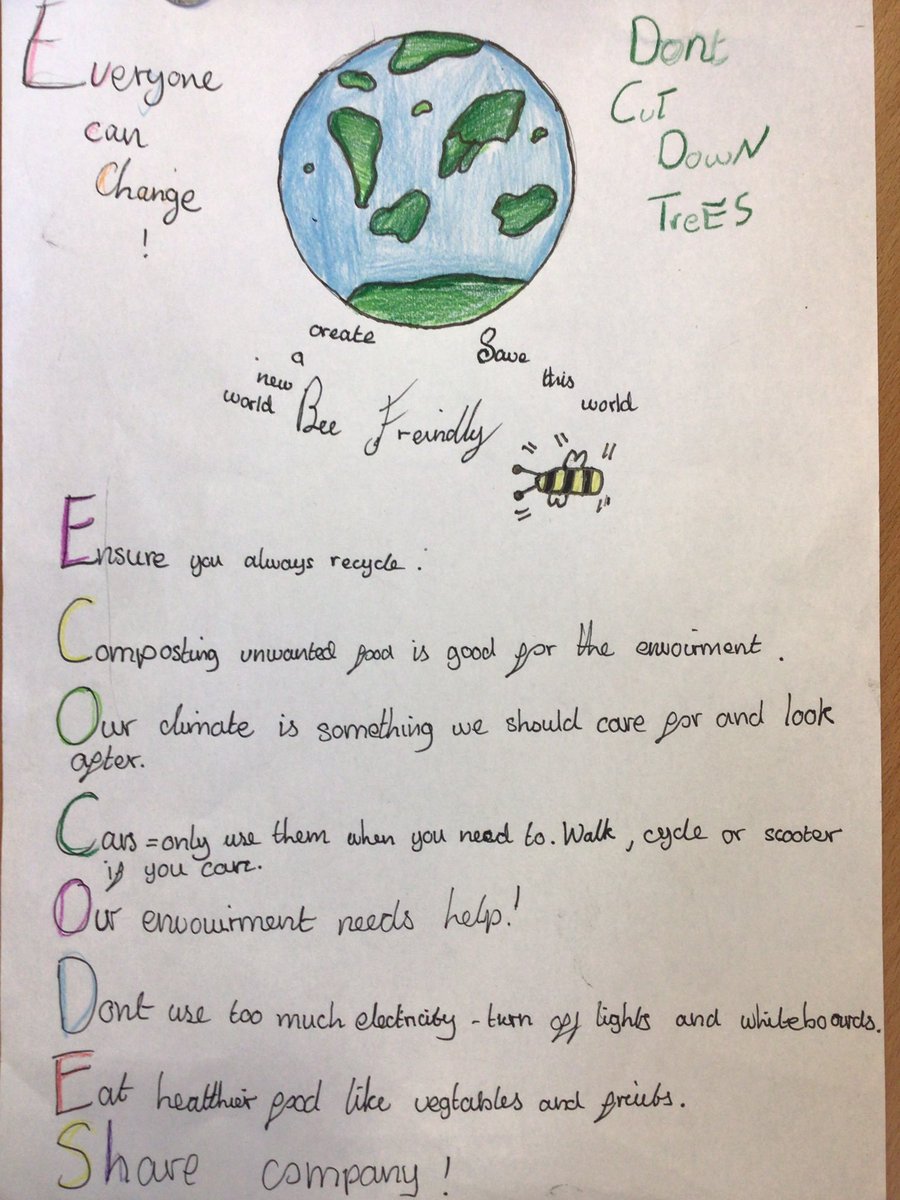 Everyone
can
Change
!
Dont
Cut
Down
TreES
create
a
new
world
Save
this
world
Bee Freindly
Ensure you always recycle.
Composting unwanted food is good for the envoirment.
Our climate is something we should care for and look
after.
Cars = only use them when you need to. Walk, cycle or scooter
if you can.
Our envouirment needs help!
Dont use too much electricity - turn off lights and whiteboards.
Eat healthier food like vegtables and friuts.
Share company!